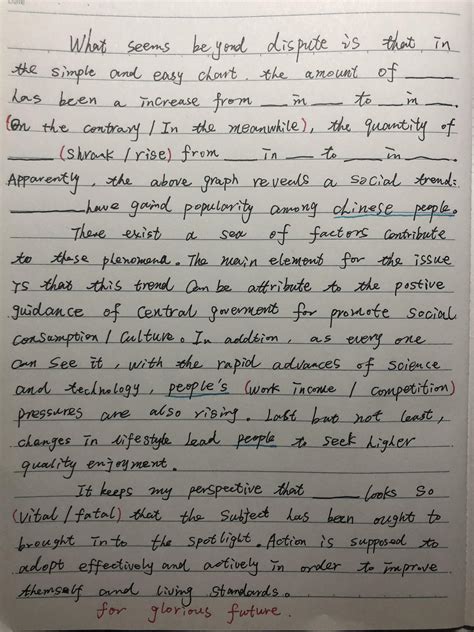 What seems beyond dispute is that in
the simple and easy chart, the amount of ____
has been a increase from ___ in ___ to ___ in ___.
(On the contrary / In the meanwhile), the quantity of
____ (shrank / rise) from ___ in ___ to ___ in ___.
Apparently, the above graph reveals a social trend:
____ have gaind popularity among chinese people.
There exist a sea of factors contribute
to these phenomena. The main element for the issue
is that this trend can be attribute to the postive
guidance of central goverment for promote social
consumption / culture. In addtion, as every one
can see it, with the rapid advances of science
and technology, people's (work income / competition)
pressures are also rising. Last but not least,
changes in lifestyle lead people to seek higher
quality enjoyment.
It keeps my perspective that ____ looks so
(vital / fatal) that the subject has been ought to
brought into the spotlight. Action is supposed to
adopt effectively and actively in order to improve
themself and living standards.
for glorious future.